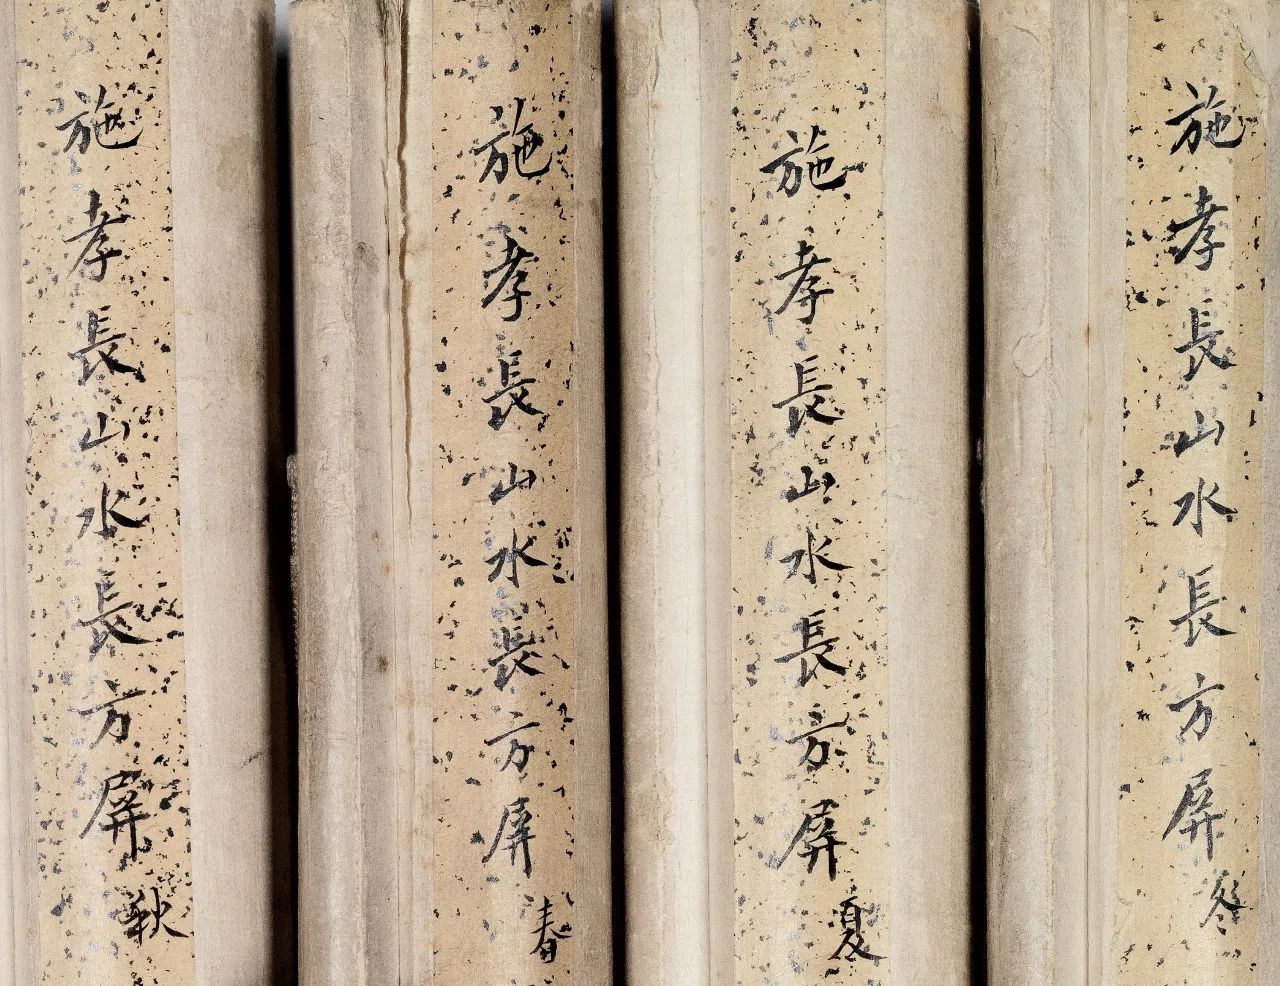 施孝長山水長方屏 冬
施孝長山水長方屏 夏
施孝長山水長方屏 春
施孝長山水長方屏 秋